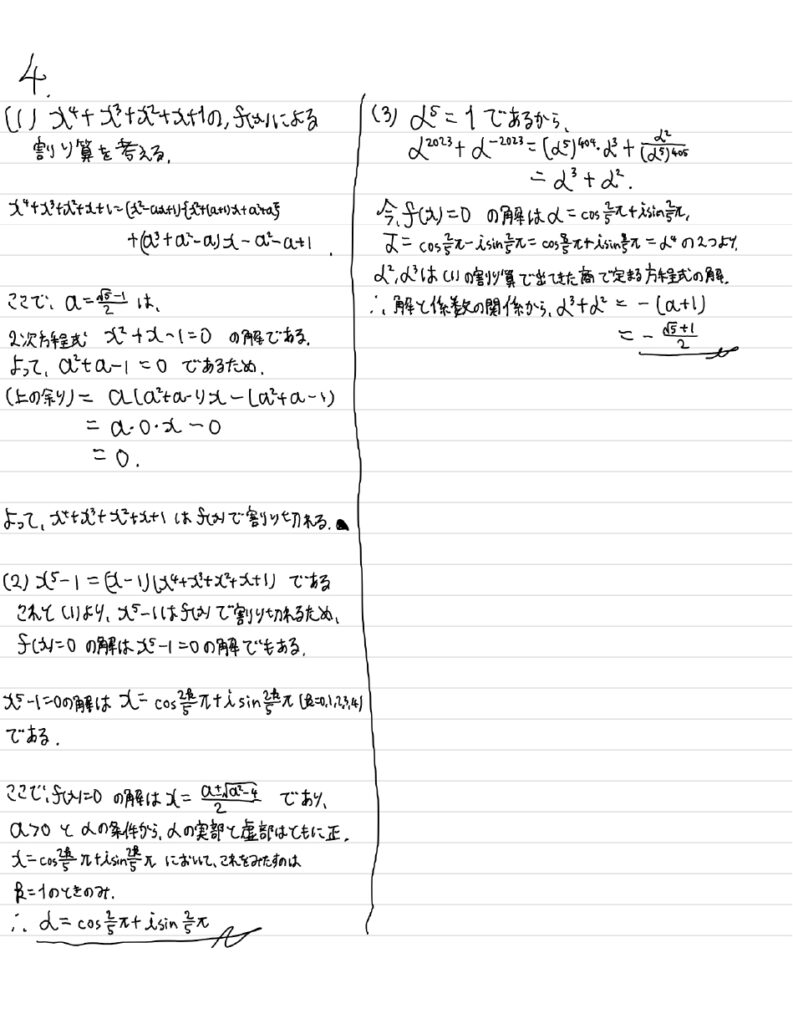 4.
(1) x⁴+x³+x²+x+1の、f(x)による
割り算を考える。
x⁴+x³+x²+x+1=(x²-ax+1){x²+(a+1)x+a²+a}
+(a³+a²-a)x-a²-a+1.
ここで、a=(√5-1)/2 は、
2次方程式 x²+x-1=0 の解である。
よって、a²+a-1=0 であるため、
(上の余り)= a(a²+a-1)x-(a²+a-1)
= a・0・x-0
= 0.
よって、x⁴+x³+x²+x+1 は f(x)で割り切れる。
(2) x⁵-1=(x-1)(x⁴+x³+x²+x+1) である
これと(1)より、x⁵-1はf(x)で割り切れるため、
f(x)=0 の解は x⁵-1=0の解でもある。
x⁵-1=0の解は x= cos 2k/5 π+i sin 2k/5 π (k=0,1,2,3,4)
である。
ここで、f(x)=0 の解は x= (a±√(a²-4))/2 であり、
a>0 と αの条件から、αの実部と虚部はともに正。
x=cos 2k/5 π+i sin 2k/5 π において、これをみたすのは
k=1のときのみ.
∴ α= cos 2/5 π+i sin 2/5 π
(3) α⁵=1 であるから、
α²⁰²³+α⁻²⁰²³=(α⁵)⁴⁰⁴・α³+α²/(α⁵)⁴⁰⁵
= α³+α².
今、f(x)=0 の解はα= cos 2/5 π+i sin 2/5 π,
ᾱ= cos 2/5 π-i sin 2/5 π=cos 8/5 π+i sin 8/5 π=α⁴ の2つより、
α²,α³は(1)の割り算で出てきた商で定まる方程式の解.
∴ 解と係数の関係から、α³+α² = -(a+1)
= - (√5+1)/2